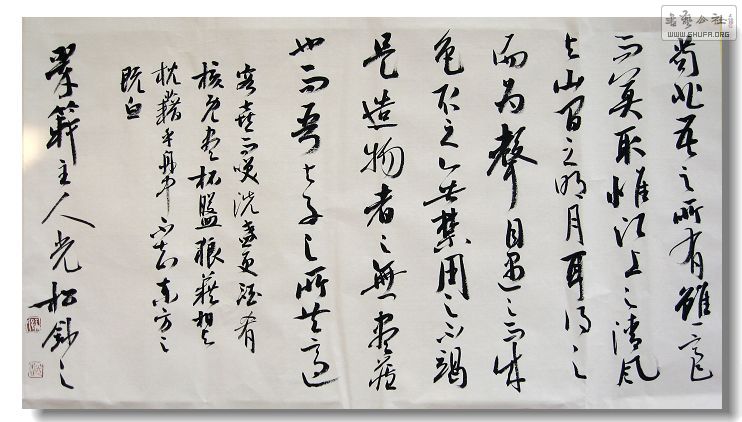 苟非吾之所有雖一毫
而莫取惟江上之清風
与山間之明月耳得之
而為聲目遇之而成
色取之無禁用之不竭
是造物者之無盡藏
也而吾与子之所共適
客喜而笑洗盞更酌肴
核既盡杯盤狼藉相与
枕藉乎舟中不知東方之
既白
主人光松之
书艺公社
WWW.SHUFA.ORG